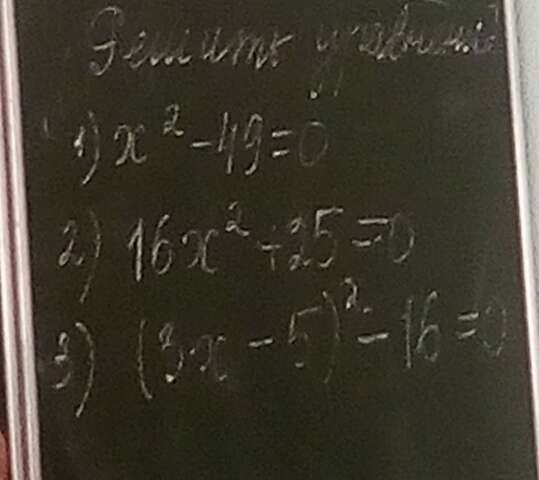 Решить уравнения
1) x² - 49 = 0
2) 16x² + 25 = 0
3) (3x - 5)² - 16 = 0